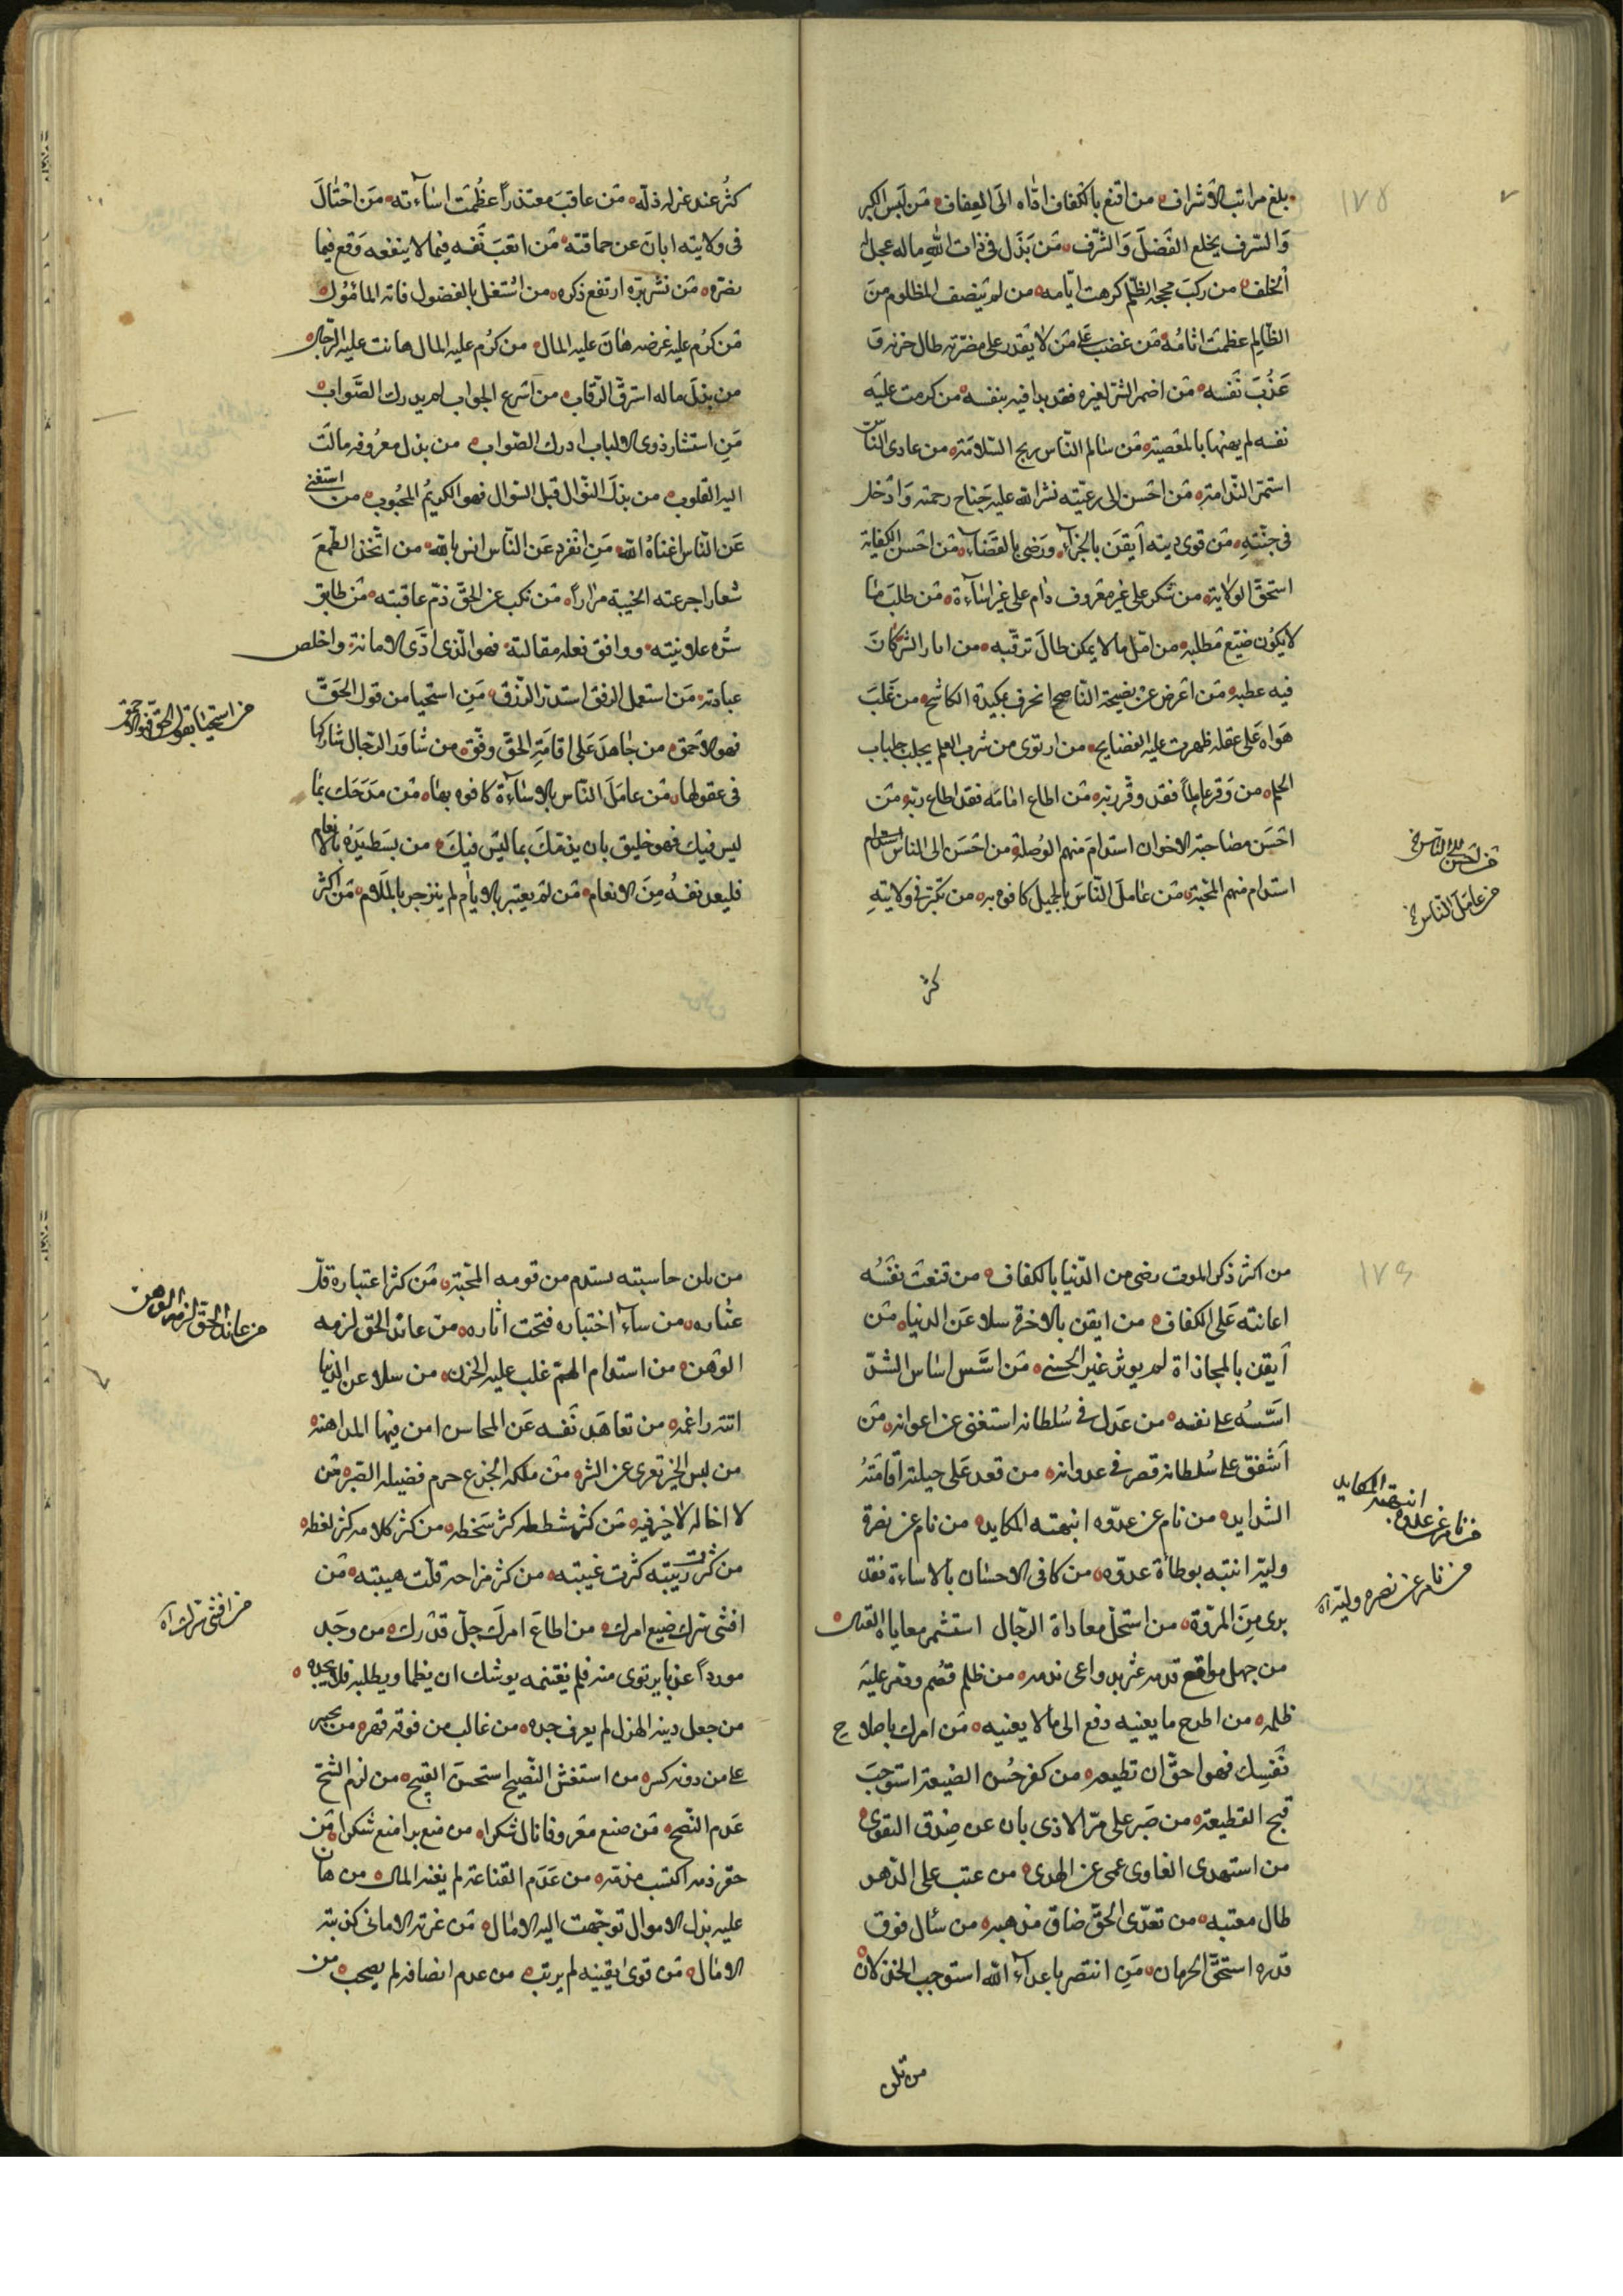 ١٧٥
بلغ مراتب الاشراف من اقنع بالكفاف اداه الى العفاف من لبس الكبر
والسرف يخلع الفضل والشرف من بذل في ذات الله ماله عجل له
الخلف من ركب محجة الظلم كرهت ايامه من لم ينصف المظلوم من
الظالم عظمت اثامه من غضب على من لا يقدر على مضرته طال حزنه و
عذب نفسه من اضمر الشر لغيره فقد بدا فيه بنفسه من كرمت عليه
نفسه لم يهنها بالمعصية من سالم الناس ربح السلامة من عادى الناس
استمر الندامة من احسن الى رعيته نشر الله عليه جناح رحمته وادخله
في جنته من قوى دينه ايقن بالجزاء ورضي بالقضاء من احسن الكفاية
استحق الولاية من شكر على غير معروف دام على غير اساءة من طلب ما
لا يكون ضيع مطلبه من امل ما لا يمكن طال ترقبه من اثار الشر كان
فيه عطبه من اعرض عن نصيحة الناصح انحرف بمكيدة الكاشح من غلب
هواه على عقله ظهرت عليه الفضايح من ارتوى من شرب العلم يجلبب جلباب
الحلم من وقر عالما فقد وقر ربه من اطاع امامه فقد اطاع ربه من
احسن مصاحبة الاخوان استدام منهم الوصلة من احسن الى الناس استدام
استدام منهم المحبة من عامل الناس بالجميل كافوه به من تكبر في ولايته
من احسن الى الناس خ
من عامل الناس خ
كثر
كثر عند عزله ذله من عاقب معتذرا عظمت اساءته من اختال
في ولايته ابان عن حماقته من اتعب نفسه فيما لا ينفعه وقع فيما
يضره من نشر بره ارتفع ذكره من اشتغل بالفضول فاته المامول
من كرم عليه عرضه هان عليه المال من كرم عليه المال هانت عليه الرجال
من بذل ماله استرق الرقاب من اسرع الجواب لم يدرك الصواب
من استشار ذوي الالباب ادرك الصواب من بذل معروفه مالت
اليه القلوب من بذل النوال قبل السوال فهو الكريم المحبوب من استغنى
عن الناس اغناه الله من انفرد عن الناس انس بالله من اتخذ الطمع
شعارا جرعته الخيبة مرارا من نكب عن الحق ذم عاقبته من طابق
سره علانيته ووافق فعله مقالته فهو الذي ادى الامانة واخلص
عبادته من استعمل الرفق استدر الرزق من استحيا من قول الحق
فهو الاحمق من جاهد على اقامة الحق وفق من شاور الرجال شاركها
في عقولها من عامل الناس بالاساءة كافوه بها من مدحك بما
ليس فيك فهو خليق بان يذمك بما ليس فيك من بسط يده بالانعام
فليعد نفسه من الانعام من لم يعتبر بالايام لم ينزجر بالملام من اكثر
من استحيا بقول الحق فهو الاحمق
١٧٦
من اكثر ذكر الموت رضي من الدنيا بالكفاف من قنعت نفسه
اعانته على الكفاف من ايقن بالاخرة سلا عن الدنيا من
ايقن بالمجازاة لم يوثر غير الحسنى من اسس اساس الشر
اسسه على نفسه من عدل في سلطانه استغنى عن اعوانه من
اشفق على سلطانه قصر في عدوانه من قعد على حيلته اقامته
الشدايد من نام عن عدوه انبهته المكايد من نام عن نصرة
وليه انتبه بوطأة عدوه من كافى الاحسان بالاساءة فقد
برى من المروة من استحل معاداة الرجال استثمر معاياة القتال
من جهل مواقع قدمه عثر بدواعي ندمه من ظلم قصم ودمر عليه
ظلمه من اطرح ما يعنيه دفع الى ما لا يعنيه من امرك باصلاح
نفسك فهو احق ان تطيعه من كفر حسن الصنيعة استوجب
قبح القطيعة من صبر على مر الاذى بان عن صدق التقوى
من استهدى الغاوى عمى عن الهدى من عتب على الدهر
طال معتبه من تعدى الحق ضاق مذهبه من سأل فوق
قدره استحق الحرمان من انتصر باعداء الله استوجب الخذلان
من نام عن عدوه انبهته المكايد
من نام عن نصره وليه اه
من تلن
من يلن حاسيته يستدم من قومه المحبة من كثر اعتباره قل
عثاره من ساء اختباره قبحت اثاره من عاند الحق لزمه
الوهن من استدام الهم غلب عليه الحزن من سلا عن الدنيا
اتته راغمة من تعاهد نفسه عن المحاسن امن فيها المداهنة
من لبس الخير تعرى عن الشر من ملكه الجزع حرم فضيلة الصبر من
لا اخا له لا خير فيه من كثر شططه كثر سخطه من كثر كلامه كثر لغطه
من كثرت ريبته كثرت غيبته من كثر مزاحه قلت هيبته من
افشى سرك ضيع امرك من اطاع امرك جل قدرك من وجد
موردا عذبا يرتوى منه فلم يغتنمه يوشك ان يظما ويطلبه فلا يجده
من جعل دينه الهزل لم يعرف جده من غالب من فوقه قهر من تجبر
على من دونه كسر من استغش النصيح استحسن القبيح من لزم الشح
عدم النصح من صنع معروفا نال شكرا من منع برا منع شكرا من
حقر ذمه اكتسب مذمة من عدم القناعة لم يغنه المال من هان
عليه بذل الاموال توجهت اليه الامال من غرته الاماني كذبته
الامال من قوى يقينه لم يرتب من عدم انصافه لم يصحب من
من عاند الحق لزمه الوهن
من افشى سرك اه